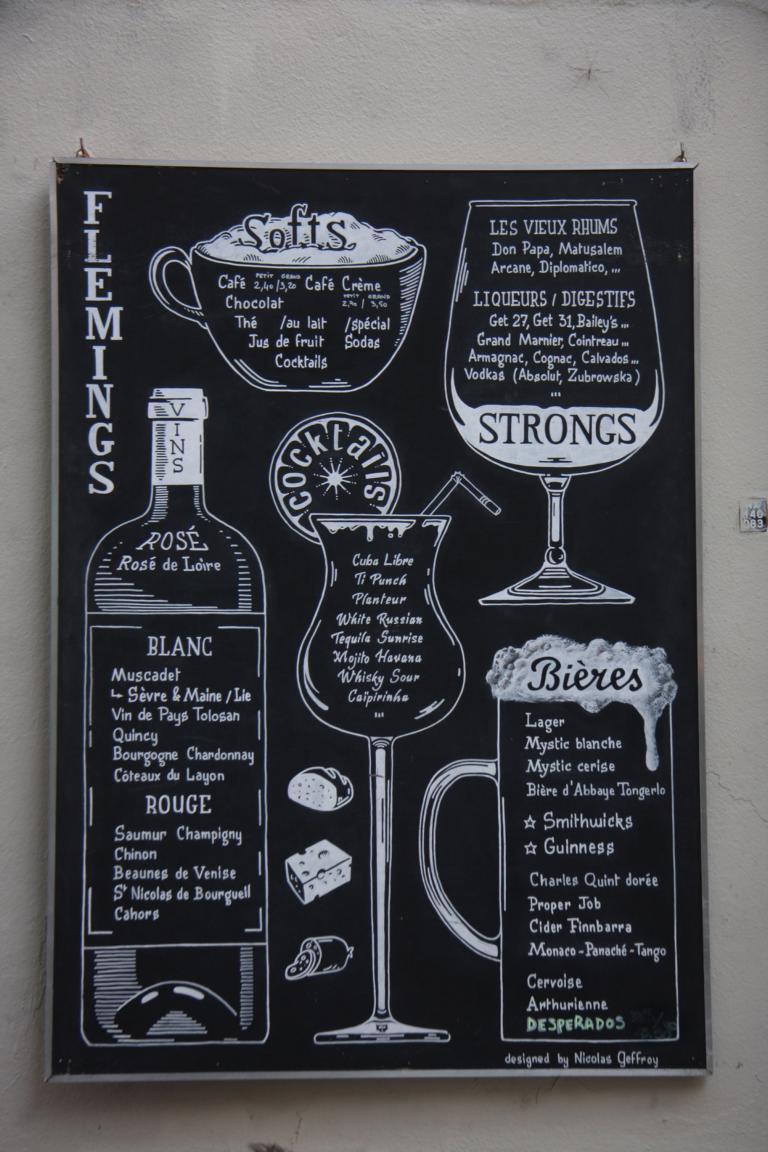 FLEMINGS
Softs
PETIT GRAND
Café 2,40 / 3,20 Café Crème
PETIT GRAND
Chocolat 2,90 / 3,50
Thé /au lait /spécial
Jus de fruit Sodas
Cocktails
LES VIEUX RHUMS
Don Papa, Matusalem
Arcane, Diplomatico, ...
LIQUEURS / DIGESTIFS
Get 27, Get 31, Bailey's ...
Grand Marnier, Cointreau ...
Armagnac, Cognac, Calvados ...
Vodkas (Absolut, Zubrowska)
...
STRONGS
VINS
ROSÉ
Rosé de Loire
BLANC
Muscadet
↳ Sèvre & Maine / Lie
Vin de Pays Tolosan
Quincy
Bourgogne Chardonnay
Côteaux du Layon
ROUGE
Saumur Champigny
Chinon
Beaunes de Venise
St Nicolas de Bourgueil
Cahors
Cocktails
Cuba Libre
Ti Punch
Planteur
White Russian
Tequila Sunrise
Mojito Havana
Whisky Sour
Caïpirinha
...
Bières
Lager
Mystic blanche
Mystic cerise
Bière d'Abbaye Tongerlo
☆ Smithwicks
☆ Guinness
Charles Quint dorée
Proper Job
Cider Finnbarra
Monaco - Panaché - Tango
Cervoise
Arthurienne
DESPERADOS
designed by Nicolas Geffroy